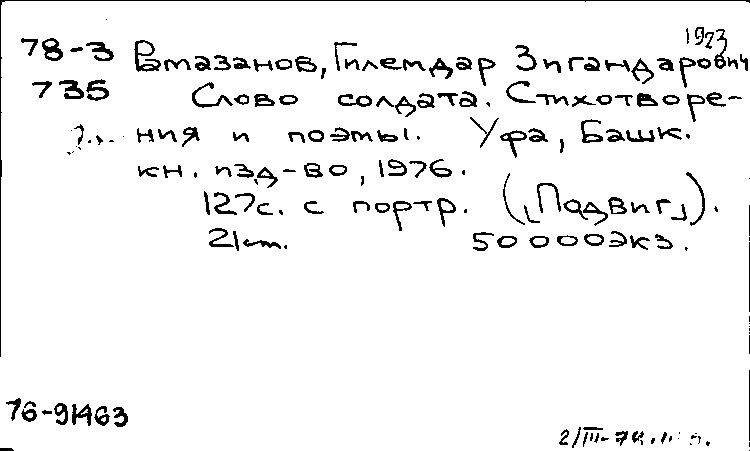 1923
78-3 Рамазанов, Гилемдар Зигандарович
735 Слово солдата. Стихотворе-
ния и поэмы. Уфа, Башк.
кн. изд-во, 1976.
127с. с портр. („Подвиг”).
21см. 50000экз.
76-91463
2/III-